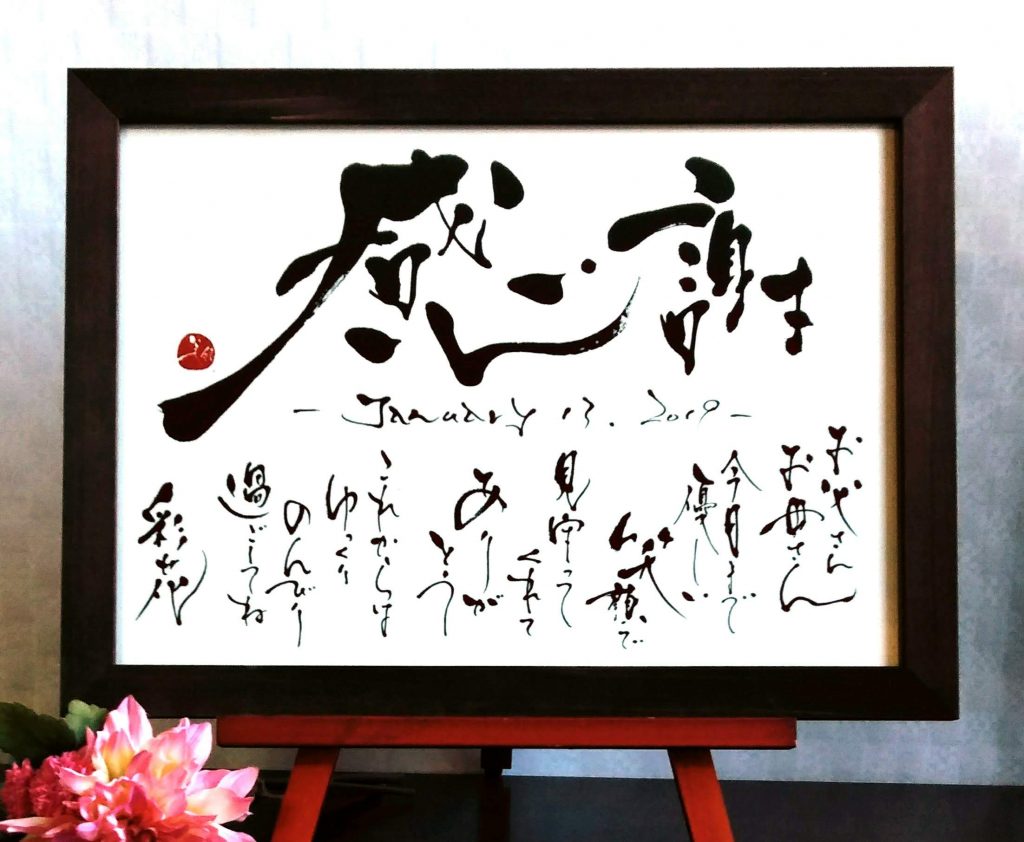 感謝
- January 13. 2019 -
お父さん
お母さん
今日まで
優しい
笑顔で
見守って
くれて
ありが
とう
これからは
ゆっくり
のんびり
過ごしてね
彩花